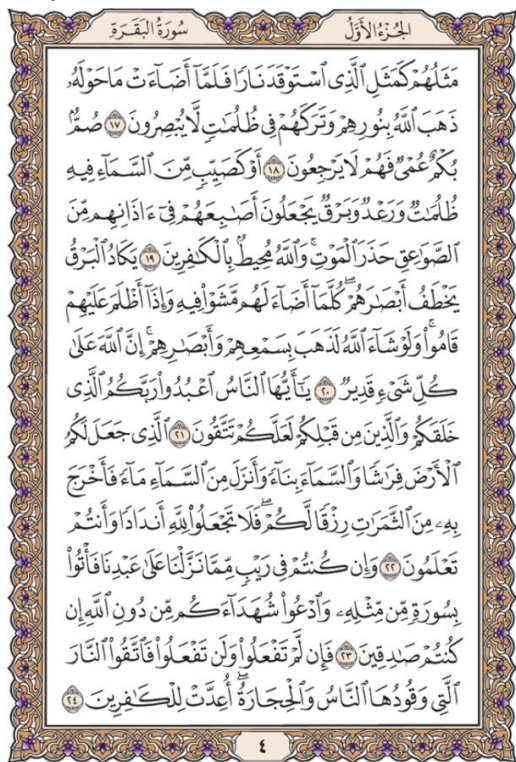 الجزء الأول
سورة البقرة
مَثَلُهُمْ كَمَثَلِ ٱلَّذِى ٱسْتَوْقَدَ نَارًا فَلَمَّآ أَضَآءَتْ مَا حَوْلَهُۥ
ذَهَبَ ٱللَّهُ بِنُورِهِمْ وَتَرَكَهُمْ فِى ظُلُمَٰتٍ لَّا يُبْصِرُونَ ١٧ صُمٌّۢ
بُكْمٌ عُمْىٌ فَهُمْ لَا يَرْجِعُونَ ١٨ أَوْ كَصَيِّبٍ مِّنَ ٱلسَّمَآءِ فِيهِ
ظُلُمَٰتٌ وَرَعْدٌ وَبَرْقٌ يَجْعَلُونَ أَصَٰبِعَهُمْ فِىٓ ءَاذَانِهِم مِّنَ
ٱلصَّوَٰعِقِ حَذَرَ ٱلْمَوْتِ ۚ وَٱللَّهُ مُحِيطٌۢ بِٱلْكَٰفِرِينَ ١٩ يَكَادُ ٱلْبَرْقُ
يَخْطَفُ أَبْصَٰرَهُمْ ۖ كُلَّمَآ أَضَآءَ لَهُم مَّشَوْا۟ فِيهِ وَإِذَآ أَظْلَمَ عَلَيْهِمْ
قَامُوا۟ ۚ وَلَوْ شَآءَ ٱللَّهُ لَذَهَبَ بِسَمْعِهِمْ وَأَبْصَٰرِهِمْ ۚ إِنَّ ٱللَّهَ عَلَىٰ
كُلِّ شَىْءٍ قَدِيرٌ ٢٠ يَٰٓأَيُّهَا ٱلنَّاسُ ٱعْبُدُوا۟ رَبَّكُمُ ٱلَّذِى
خَلَقَكُمْ وَٱلَّذِينَ مِن قَبْلِكُمْ لَعَلَّكُمْ تَتَّقُونَ ٢١ ٱلَّذِى جَعَلَ لَكُمُ
ٱلْأَرْضَ فِرَٰشًا وَٱلسَّمَآءَ بِنَآءً وَأَنزَلَ مِنَ ٱلسَّمَآءِ مَآءً فَأَخْرَجَ
بِهِۦ مِنَ ٱلثَّمَرَٰتِ رِزْقًا لَّكُمْ ۖ فَلَا تَجْعَلُوا۟ لِلَّهِ أَندَادًا وَأَنتُمْ
تَعْلَمُونَ ٢٢ وَإِن كُنتُمْ فِى رَيْبٍ مِّمَّا نَزَّلْنَا عَلَىٰ عَبْدِنَا فَأْتُوا۟
بِسُورَةٍ مِّن مِّثْلِهِۦ وَٱدْعُوا۟ شُهَدَآءَكُم مِّن دُونِ ٱللَّهِ إِن
كُنتُمْ صَٰدِقِينَ ٢٣ فَإِن لَّمْ تَفْعَلُوا۟ وَلَن تَفْعَلُوا۟ فَٱتَّقُوا۟ ٱلنَّارَ
ٱلَّتِى وَقُودُهَا ٱلنَّاسُ وَٱلْحِجَارَةُ ۖ أُعِدَّتْ لِلْكَٰفِرِينَ ٢٤
٤